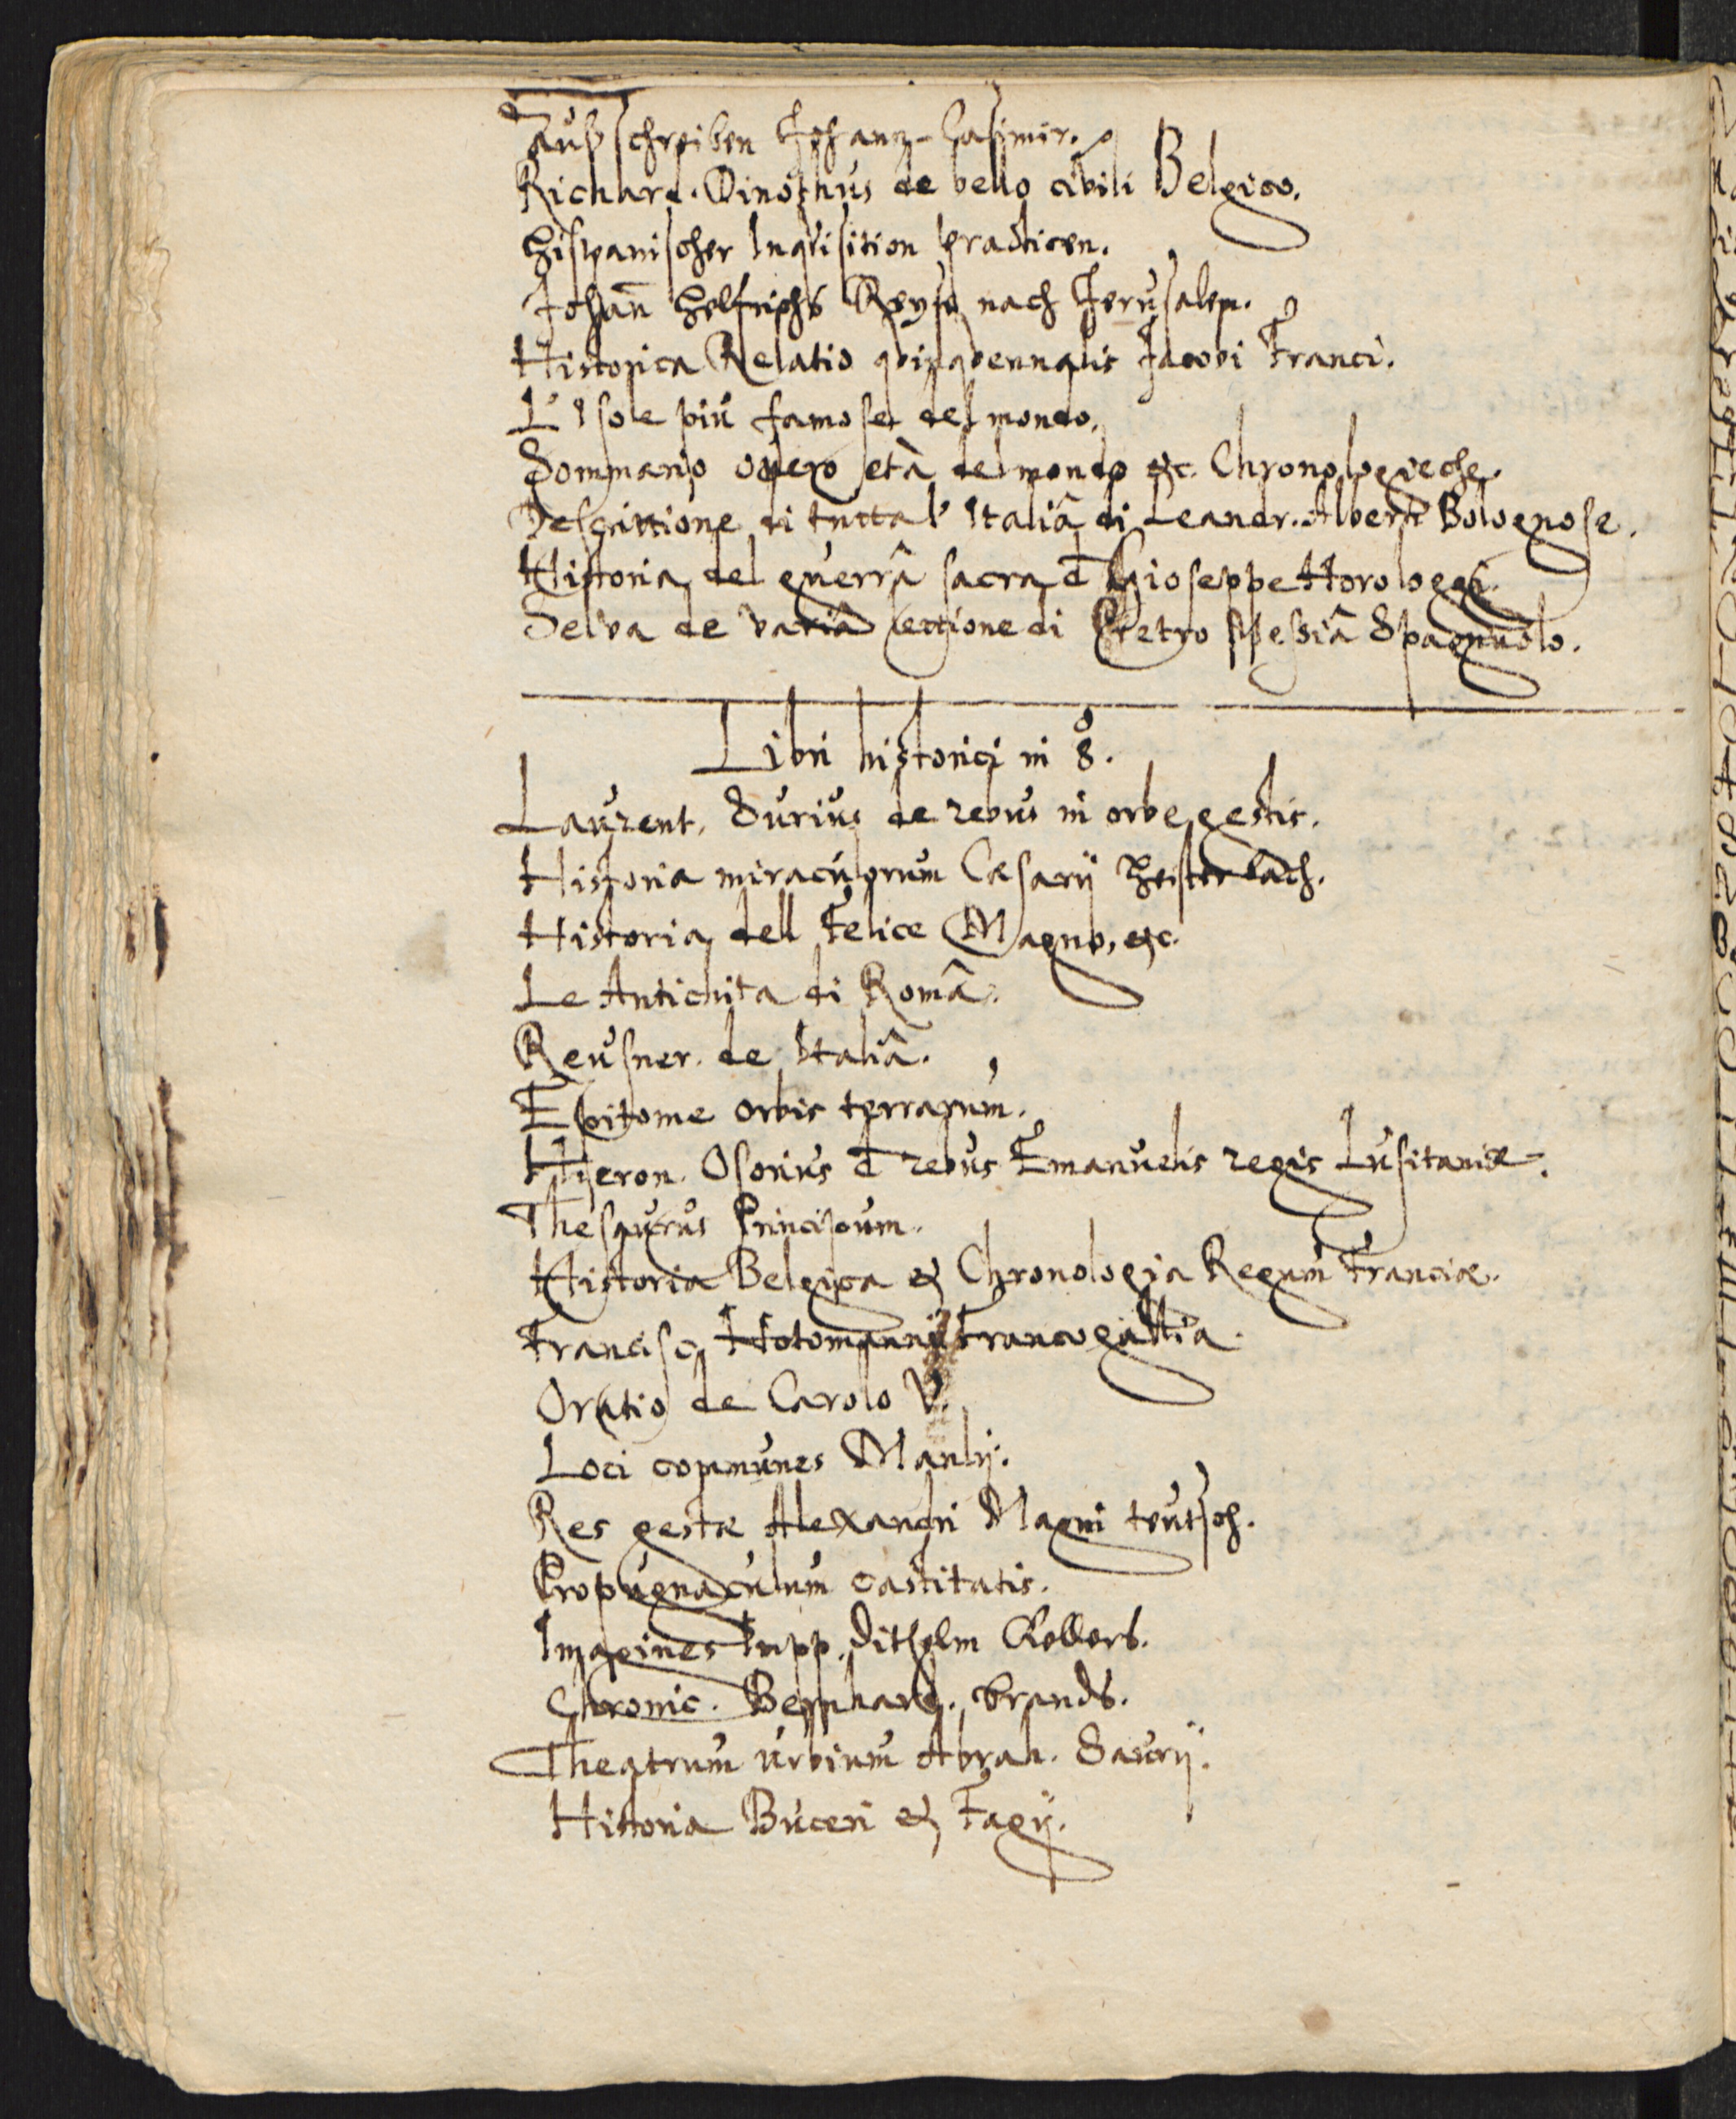 Außschreiben Johanz-Casimir.
Richard. Dinothus de bello civili Belgico.
Hispanischer Inqvisition practicen.
Johan̄ Helfrichs Reyse nach Jerusalem.
Historica Relatio qvinqvennalis Jacobi Franci.
L'Isole piu famose del mondo.
Sommario overo età del mondo &c. Chronologieche.
Descrittione di tutta l' Italiâ di Leandr. Alberti Bolognose.
Historia del guerrâ sacra d̄ Gioseppe Horologgi.
Selva de variâ lettione di Pietro Messiâ Spagnuolo.
Libri historici in 8.
Laurent. Surius de rebus in orbe gestis.
Historia miraculorum Cæsarij Heisterbach.
Historia dell Felice Magno, &c.
Le Antichita di Româ.
Reusner. de Italiâ.
Epitome orbis terrarum.
Hieron. Osorius d̄ rebus Emanuelis regis Lusitaniæ.
Thesaurus Principum.
Historia Belgica & Chronologia Regum Franciæ.
Francisc. Hotomannij Francogallia.
Oratio de Carolo V.
Loci communes Manlij.
Res gestæ Alexandri Magni teutsch.
Propugnaculum castitatis.
Imagines Impp. Dithelm Kellers.
Chronic. Bernhard. Brands.
Theatrum urbium Abrah. Saurij.
Historia Buceri & Fagij.